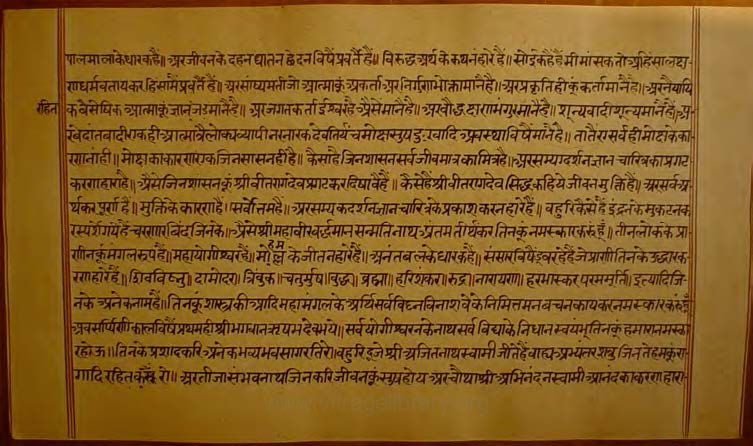 पालमालाकेधारकहैं॥ अरजीवनकेदहनघातनछेदनविषैंप्रवर्तैहैं॥ विरुद्धअर्थकेकथनहारेहैं॥ सोईकहैहैंमीमांसकतोअहिंसालक्ष
णधर्मबतायकरहिंसामैंप्रवर्तैहैं॥ अरसांष्यमतीजोआत्माकूंअकर्ताअरनिर्गुणभोक्तामानैहै॥ अरप्रकृतिहीकूंकर्तामानैहैं॥ अरनैयायि
रहित
कवैसेषिकआत्माकूंज्ञानंजडमानैहैं॥ अरजगतकर्ताईश्वरहैअैसेमानैहै॥ अरबौद्धक्षणभंगुरमानैहैं॥ शून्यवादीशून्यमानैहैं॥ अ
रबेदांतबादीएकहीआत्मात्रैलोक्यव्यापीनरनारकदेवतिर्यंचमोक्षसुषदुःखादिअवस्थाविषैंमानैहैं॥ तातैंएसर्वहीमोक्षकेका
रणनांही॥ मोक्षकाकारणएकजिनसासनहीहै॥ कैसाहैजिनशासनसर्वजीवमात्रकामित्रहै॥ अरसम्यग्दर्शनज्ञानचारित्रकाप्रगट
करणहाराहै॥ अैसेजिनशासनकूंश्रीवीतरागदेवप्रगटकरदिषावैहैं॥ कैसेहैंश्रीवीतरागदेवसिद्धकहियेजीवनमुक्तिहैं॥ अरसर्वअ
र्थकरपूर्णहैं॥ मुक्तिकेकारणहै॥ सर्वोत्तमहै॥ अरसम्यकदर्शनज्ञानचारित्रकेप्रकाशकरनहारेहैं॥ बहुरिकैसेहैंइंद्रनकेमुकटनक
रस्पर्शगयेहैंचरणारविंदजिनके॥ अैसेश्रीमहावीरवर्द्धमानसन्मतिनाथअंतमतीर्थंकरतिनकूंनमस्कारकरुंहूं॥ तीनलोककेप्रा
णीनकूंमंगलरूपहैं॥ महायोगीश्वरहैं॥ मोहमल्लकेजीतनहारेहैं॥ अनंतबलकेधारकहैं॥ संसारविषैंडूबरहेहैंजेप्राणीतिनकेउद्धारक
रणहारेहैं॥ शिवविष्नु॥ दामोदर॥ त्रिंबुक॥ चतुर्मुष॥ बुद्ध॥ ब्रह्मा॥ हरिशंकर॥ रुद्र॥ नारायण॥ हरभास्करपरममूर्ति॥ इत्यादिजि
नकेअनेकनामहैं॥ तिनकूंशास्त्रकीआदिमहामंगलकेअर्थिसर्वविघ्नविनाशवेकेनिमित्तमनबचनकायकरनमस्कारकरुंहूं
अवसर्प्पिणीकालविषैंप्रथमहीश्रीभगवानऋषभदेवभये॥ सर्वयोगीश्वरनकेनाथसर्वविद्याकेनिधानस्वयंभूतिनकूंहमारानमस्का
रहोऊ॥ तिनकेप्रशादकरिअनेकभव्यभवसागरतिरे॥ बहुरिदूजेश्रीअजितनाथस्वामीजीतेहैंबाह्यअभ्यंतरशत्रुजिनतेहमकूंरा
गादिरहितकरो॥ अरतीजासंभवनाथजिनकरिजीवनकूंसुषहोयअरचौथाश्रीअभिनंदनस्वामीआनंदकाकरणहारा